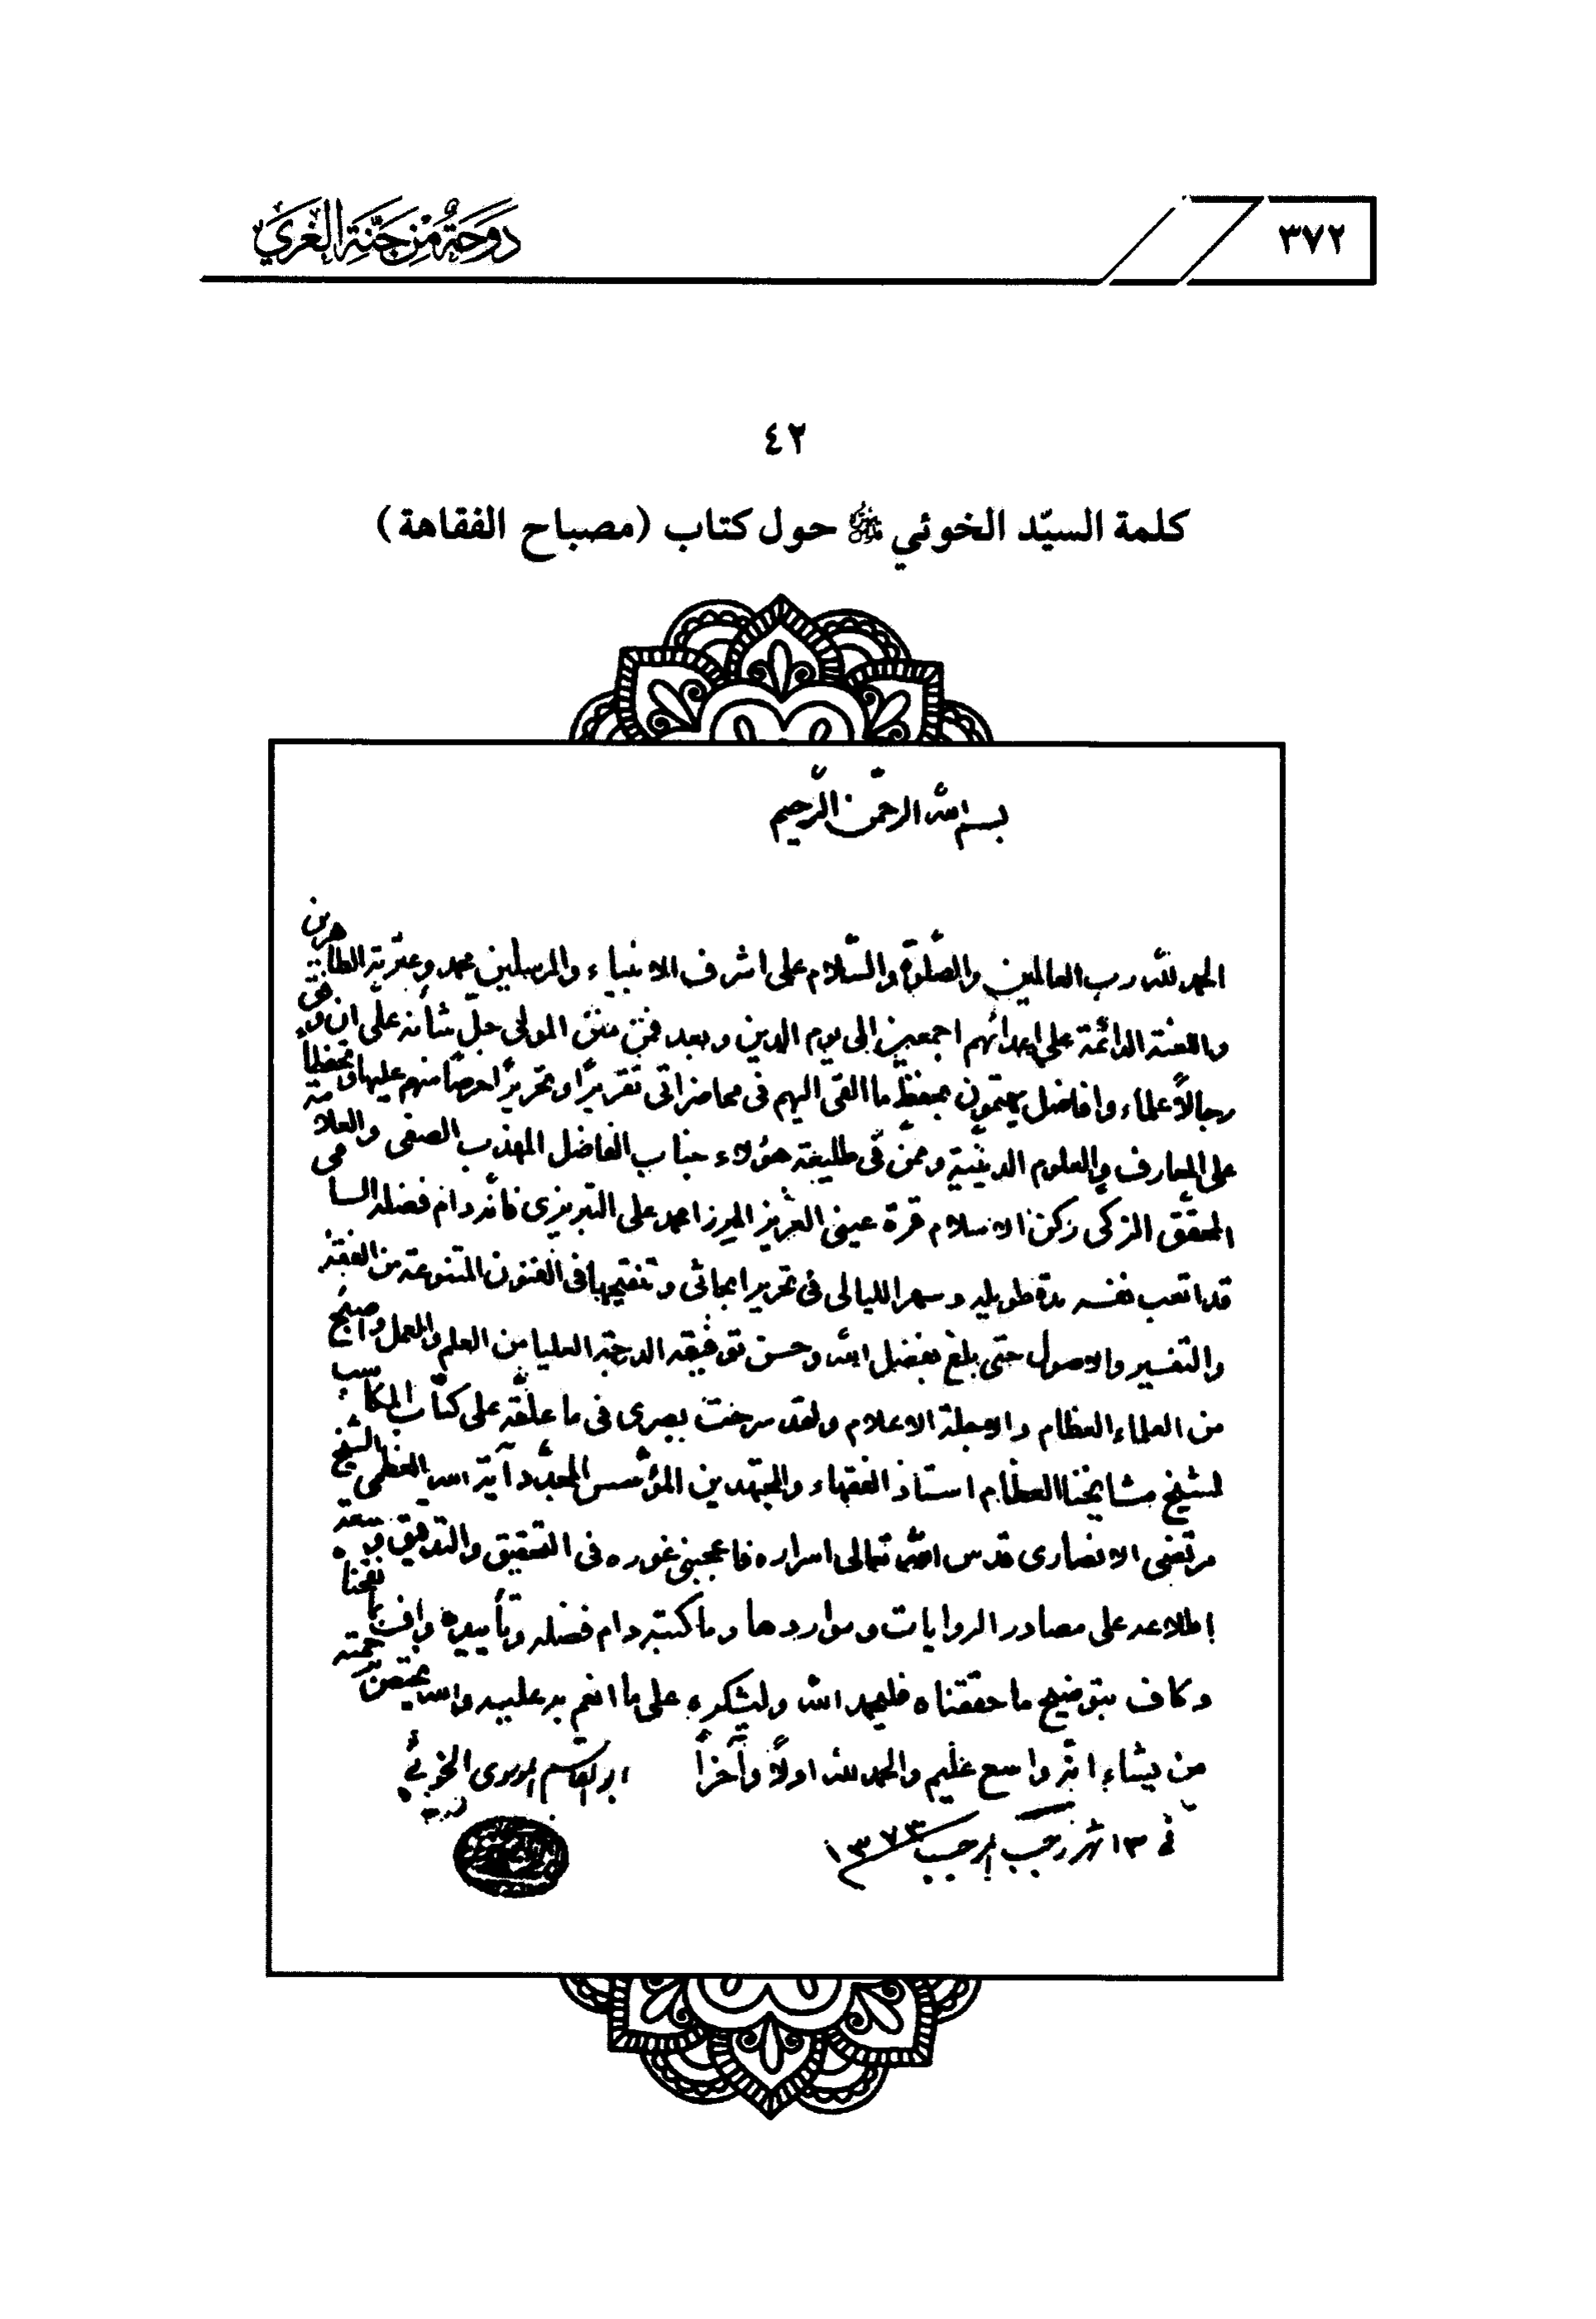 ٣٧٢
دوحة من جنة الغري
٤٢
كلمة السيّد الخوئي حول كتاب (مصباح الفقاهة)
بسم الله الرحمن الرحيم
الحمد لله رب العالمين والصلوة والسلام على اشرف الانبياء والمرسلين محمد وعترته الطاهرين
واللعنة الدائمة على اعدائهم اجمعين الى يوم الدين وبعد فمن منن المولى جلّ شأنه على ان وفق
رجالاً علماء وافاضل يهتمون بحفظ ما القى اليهم فى محاضراتى تقريراً وتحريراً حرصاً منهم عليها وتحفظاً
على المعارف والعلوم الدينية وممن فى طليعة هؤلاء جناب الفاضل المهذب الصفى والعلامة
المحقق الزكى ركن الاسلام قرة عينى العزيز الميرزا محمد على التبريزى فانه دام فضله السامى
قد اتعب نفسه مدة طويلة وسهر الليالى فى تحرير ابحاثى وتنقيحها فى الفنون المتنوعة من الفقه
والتفسير والاصول حتى بلغ بفضل الله وحسن توفيقه الدرجة العليا من العلم والعمل واصبح
من العلماء العظام والاجلة الاعلام ولقد سرحت بصرى فى ما علقه على كتاب المكاسب
لشيخ مشايخنا العظام استاذ الفقهاء والمجتهدين المؤسس المجدّد آية الله العظمى الشيخ
مرتضى الانصارى قدس الله تعالى اسراره فاعجبنى غوره فى التحقيق والتدقيق وسعة
اطلاعه على مصادر الروايات ومواردها وما كتبه دام فضله وتأييده واف بما نقحناه
وكاف بتوضيح ما حققناه فليحمد الله وليشكره على ما انعم به عليه والله يختص برحمته
من يشاء انه واسع عليم والحمد لله اولاً وآخراً ابو القاسم الموسوى الخوئي
فى ١٣ شهر رجب المرجب ١٣٧٣